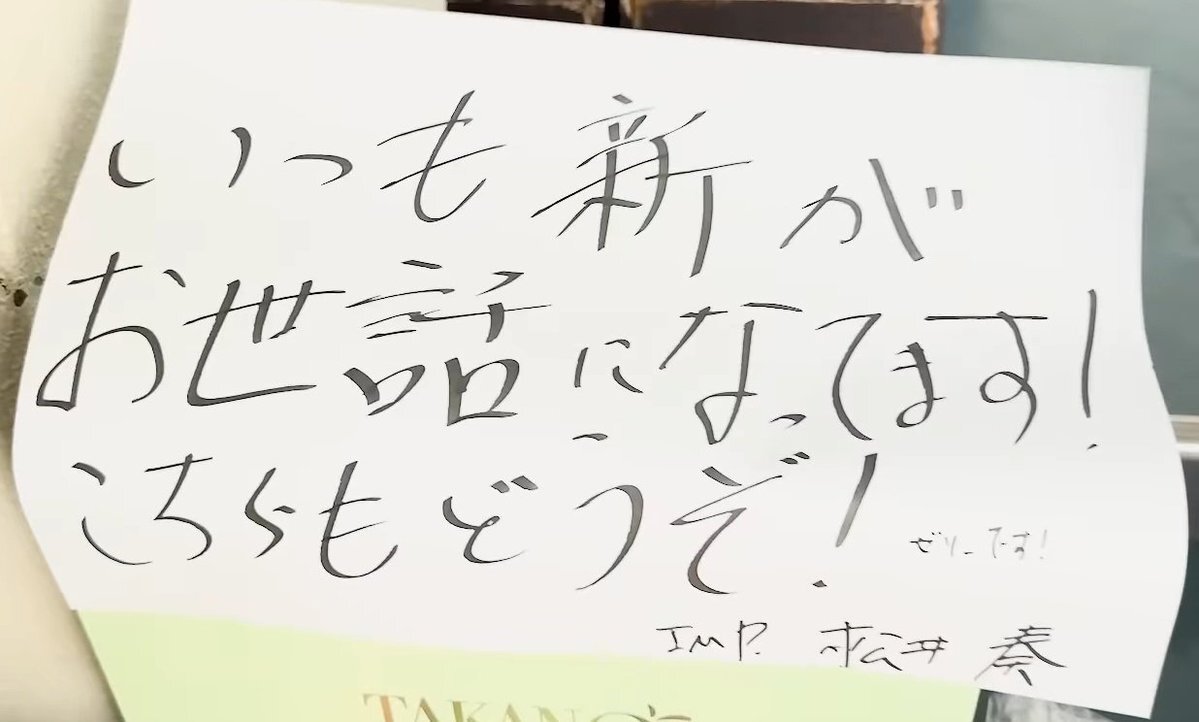 いつも新が
お世話になってます!
こちらもどうぞ!
ゼリーです!
IMP. 松井奏
TAKANO